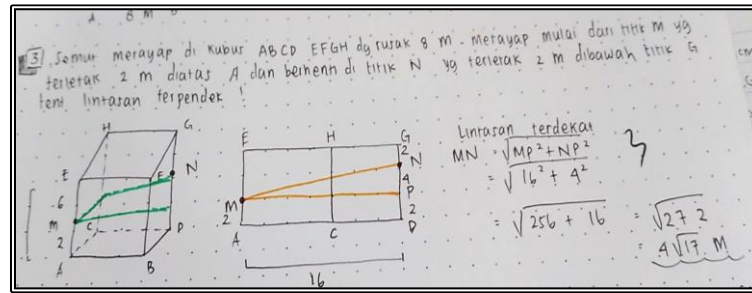 A 8 m
3 Semut merayap di kubus ABCD EFGH dg rusak 8 m. merayap mulai dari titik M yg
terletak 2 m diatas A dan berhenti di titik N yg terletak 2 m dibawah titik G
tent lintasan terpendek !
H G
E F N
6
M C D
2
A B
E H G
2
N
4
M P
2 2
A C D
16
Lintasan terdekat
MN = √MP² + NP²
= √16² + 4²
= √256 + 16 = √272
= 4√17 M
cm